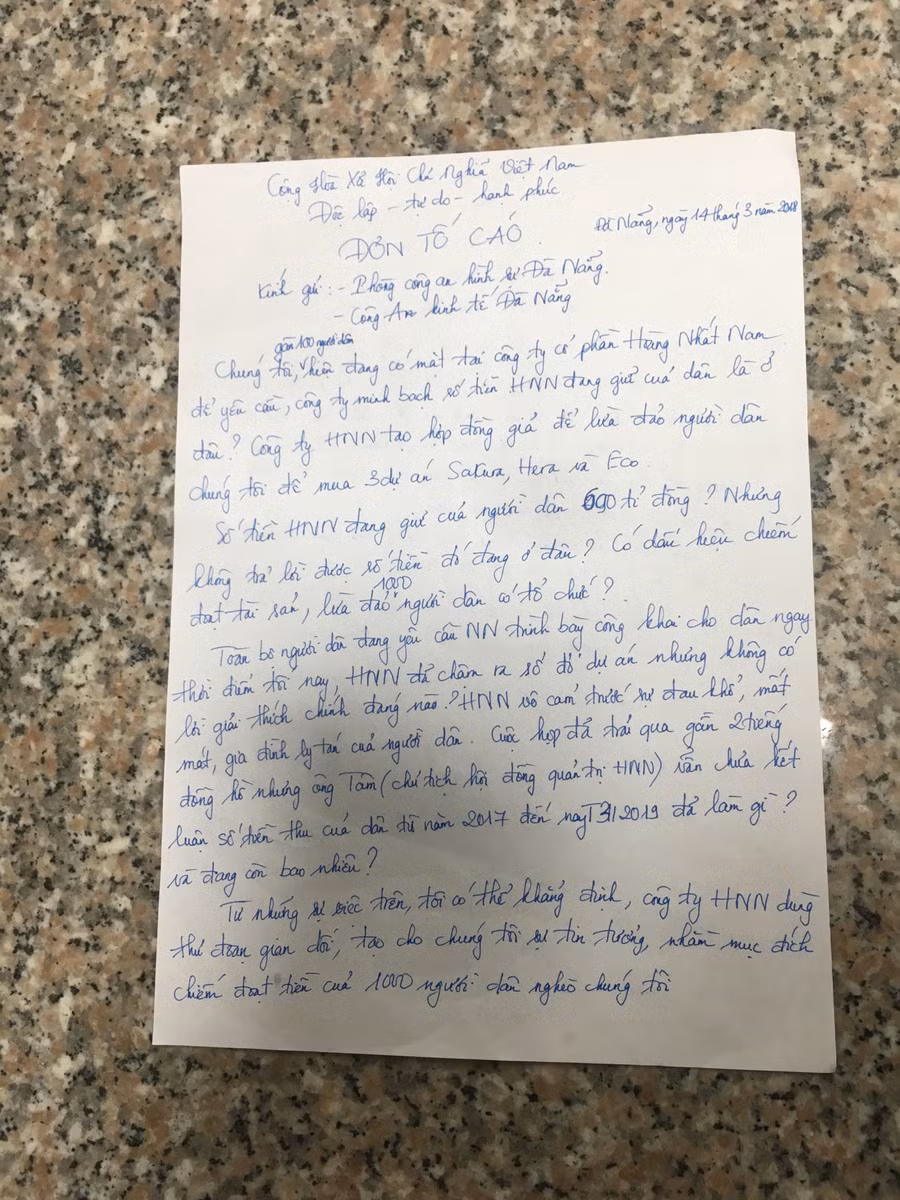 Cộng Hòa Xã Hội Chủ Nghĩa Việt Nam
Độc lập - tự do - hạnh phúc
Đà Nẵng, ngày 14 tháng 3 năm 2018
ĐƠN TỐ CÁO
Kính gửi: - Phòng công an hình sự Đà Nẵng.
- Công An kinh tế Đà Nẵng
gần 100 người dân
Chúng tôi, hiện đang có mặt tại công ty cổ phần Hoàng Nhất Nam
để yêu cầu, công ty minh bạch số tiền HNN đang giữ của dân là ở
đâu? Công ty HNN tạo hợp đồng giả để lừa đảo người dân
chúng tôi để mua 3 dự án Sakura, Hera và Eco.
Số tiền HNN đang giữ của người dân 600 tỉ đồng? Nhưng
không trả lời được số tiền đó đang ở đâu? Có dấu hiệu chiếm
đoạt tài sản, lừa đảo 1000 người dân có tổ chức?
Toàn bộ người dân đang yêu cầu NN trình bày công khai cho dân ngay
thời điểm tối nay, HNN đã chậm ra sổ đỏ dự án nhưng không có
lời giải thích chính đáng nào? HNN vô cảm trước sự đau khổ, mất
mát, gia đình ly tán của người dân. Cuộc họp đã trải qua gần 2 tiếng
đồng hồ nhưng ông Tâm (chủ tịch hội đồng quản trị HNN) vẫn chưa kết
luận số tiền thu của dân từ năm 2017 đến nay T3/2019 đã làm gì?
và đang còn bao nhiêu?
Từ những sự việc trên, tôi có thể khẳng định, công ty HNN dùng
thủ đoạn gian dối, tạo cho chúng tôi sự tin tưởng, nhằm mục đích
chiếm đoạt tiền của 1000 người dân nghèo chúng tôi